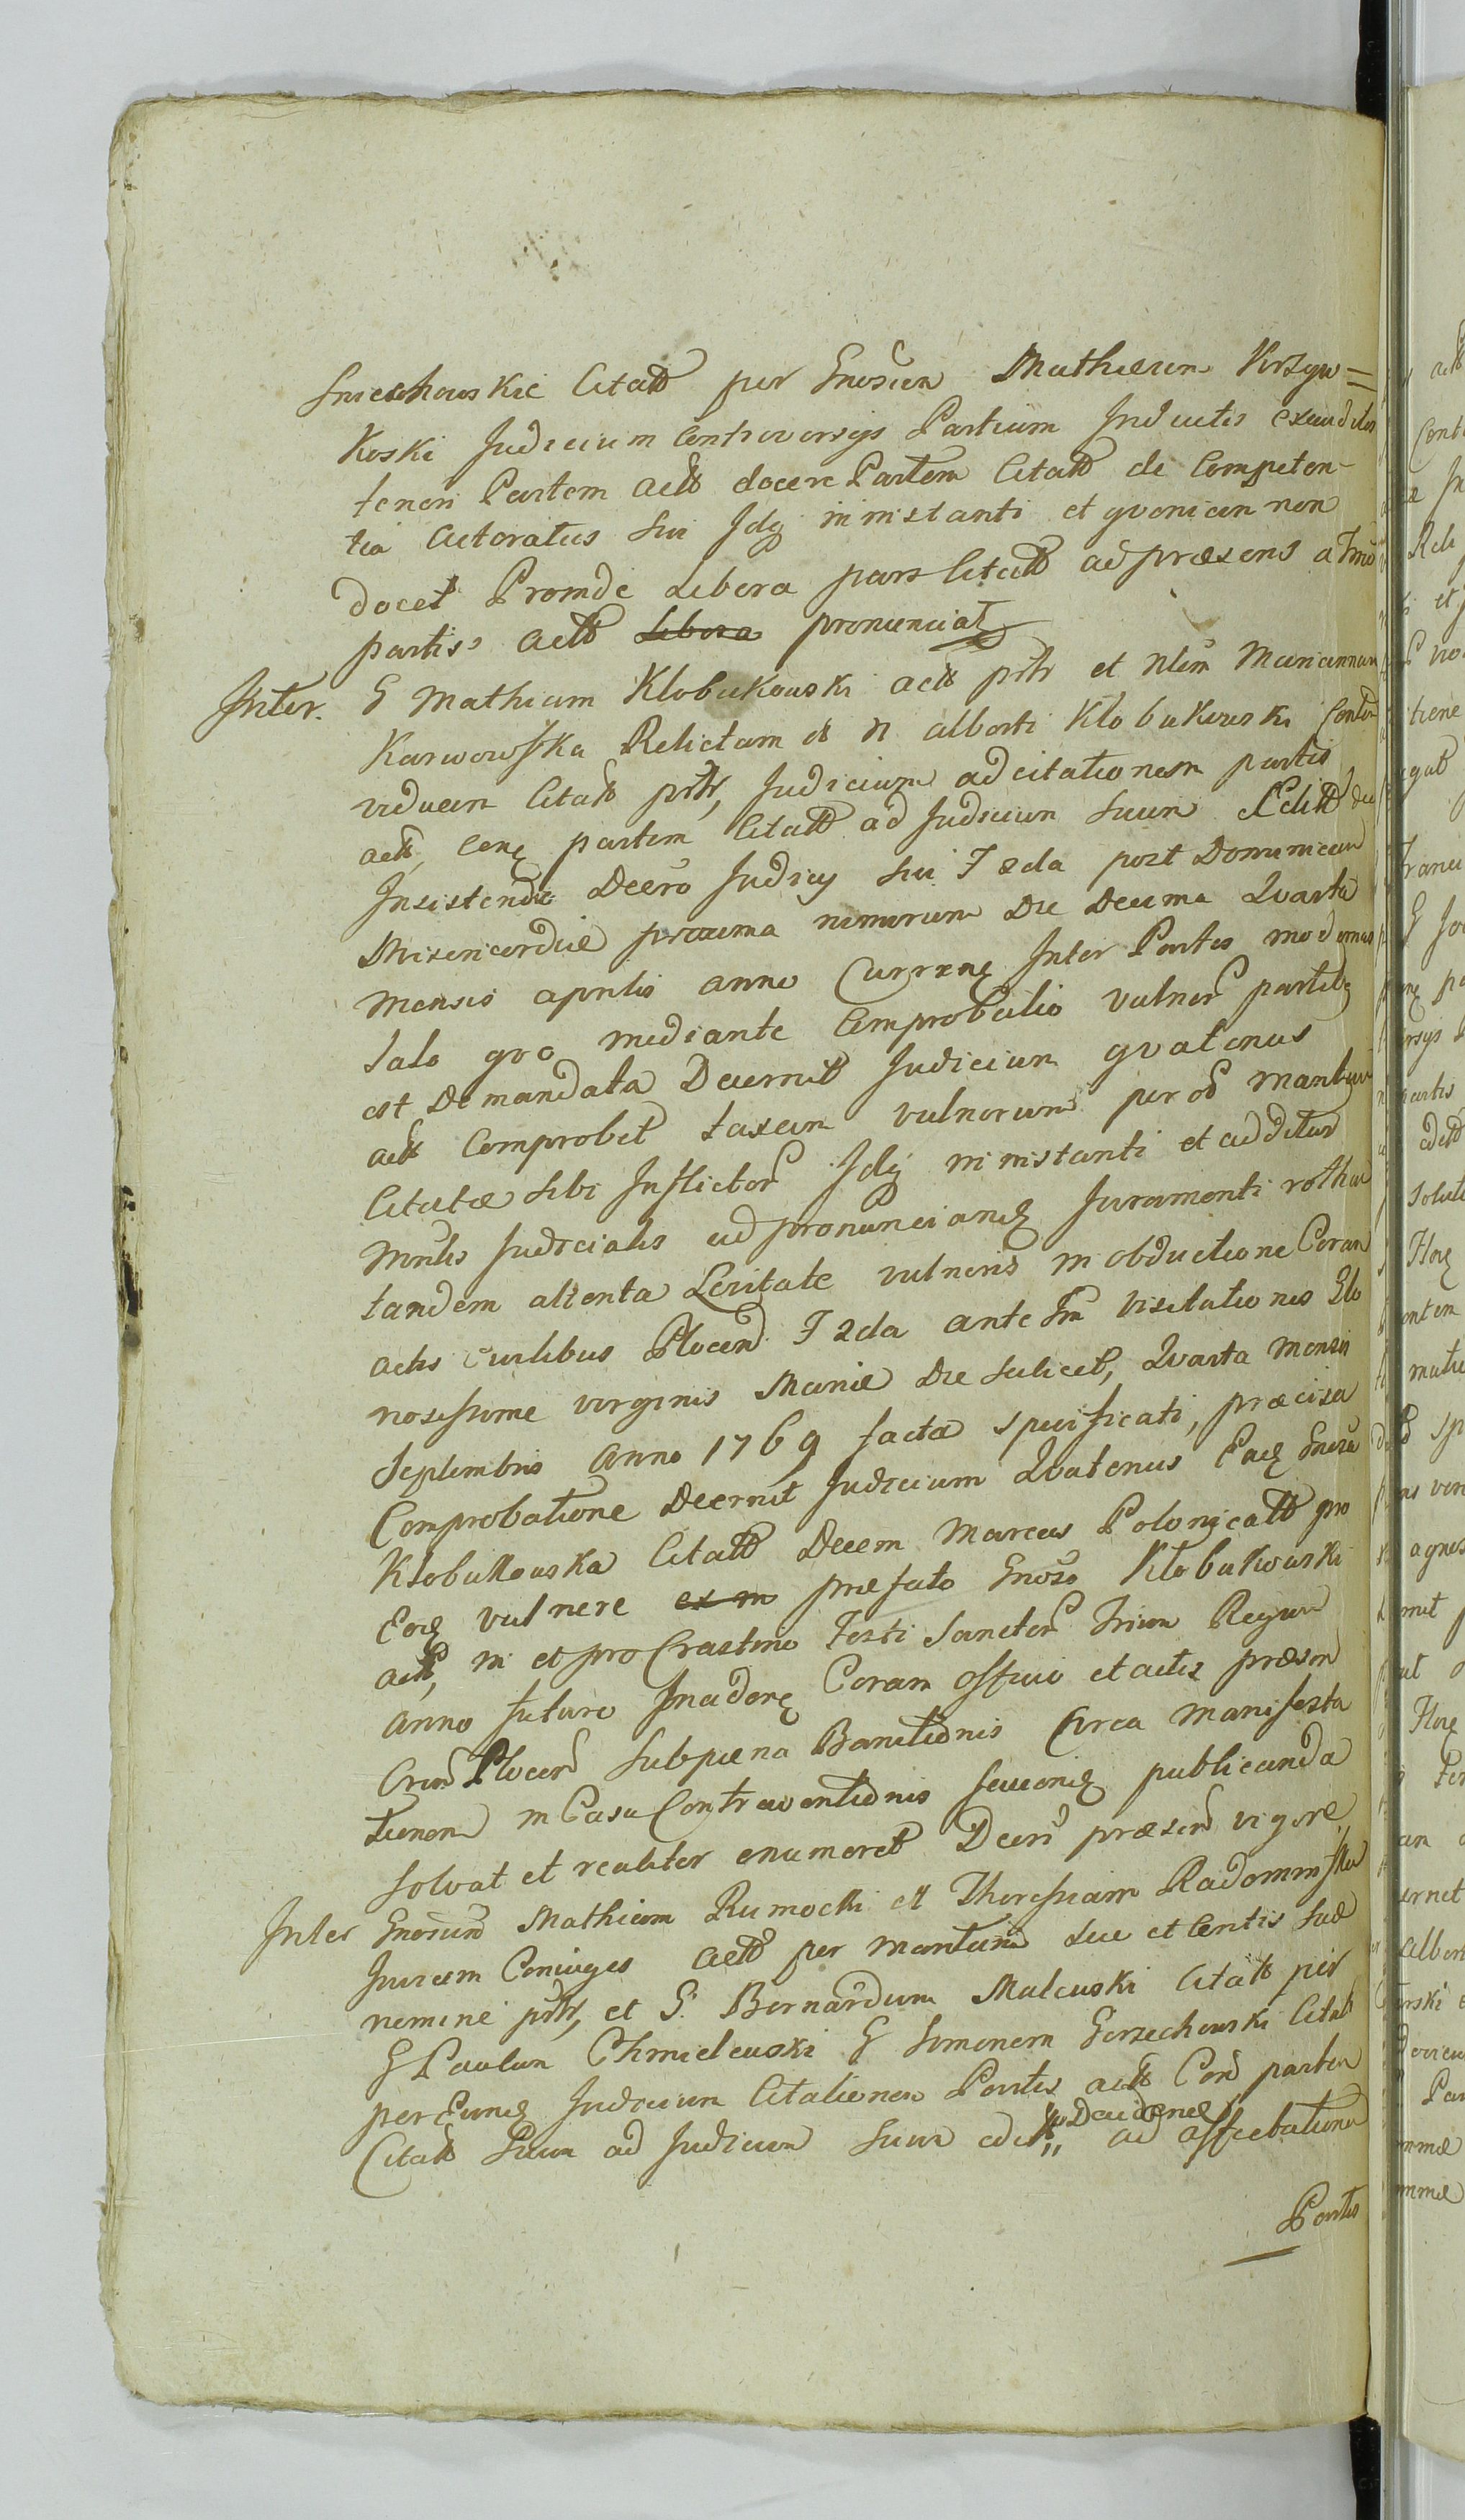 Sniechowskie Citatt per Gnosum Mathiam Krzyw=
koski Judicium Controversijs Partium Inductis exauditis
teneri Partem actt docere Partem Citatt de Competen-
tia actoratus sui Idq in instanti et qvoniam non
docet Proinde Libera pars Citatt ad præsens a Tmno
partis actt Libera pronunciat
Inter. G Mathiam Klobukowski actt pntt et Nlem Mariannam
Karwowska Relictam olt N alberti Klobukowski Condm
viduam Citatt pntt, Judicium ad citationem partis
actt, Conq partem Citatt ad Judicium suum Editt de
Insistendo Decro Judicij sui F 2da post Dominicam
Misericordiæ proxima nimirum Die Decima Qvarta
Mensis aprilis anno Currenq Inter Partes modernas
Lato qvo mediante Comprobatio vulner partibq
est Demandata Decernit Judicium qvatenus
actt Comprobet taxam vulnerum per olt Maritum
Citatæ sibi Inflictor Idq in instanti et additur
Mntlis Judicialis ad pronuncianq Juramenti rotham
tandem attenta Levitate vulneris in obductione Coram
actis Curlibus Plocen F 2da ante Fm Visitationis Glo
riosissime virginis Mariæ Die scilicet, Qvarta Mensis
Septembris Anno 1769 facta specificati, præcisa
Comprobatione Decernit Judicium Qvatenus Eaq Gnosa
Klobukowska Citatt Decem Marcas Polonicatt pro
Eoq vulnere ex in præfato Gnoso Klobukowski
actt, in et pro Crastino Festi Sanctor Trium Regum
anno futuro Inciden Coram officio et actis præsen
Crn Plocen Sub pæna Banitionis Circa Manifesta
tionem in Casu Contraventionis secuenq publicanda
solvat et realiter enumeret Decri præsen vigore
Inter Gnosum Mathiam Rumocki et Theressiam Radominska
Invicem Coniuges actt per Maritum suo et Contis suæ
nemine pntt, et G. Bernardum Malewski Citatt per
G Paulum Chmielewski G Simonem Gorzechowski Citatt
per Eunq Judicium Citationem Partis actt Con partem
Citatt Suum ad Judicium suum editt Decidenq ad affectationem
Partis